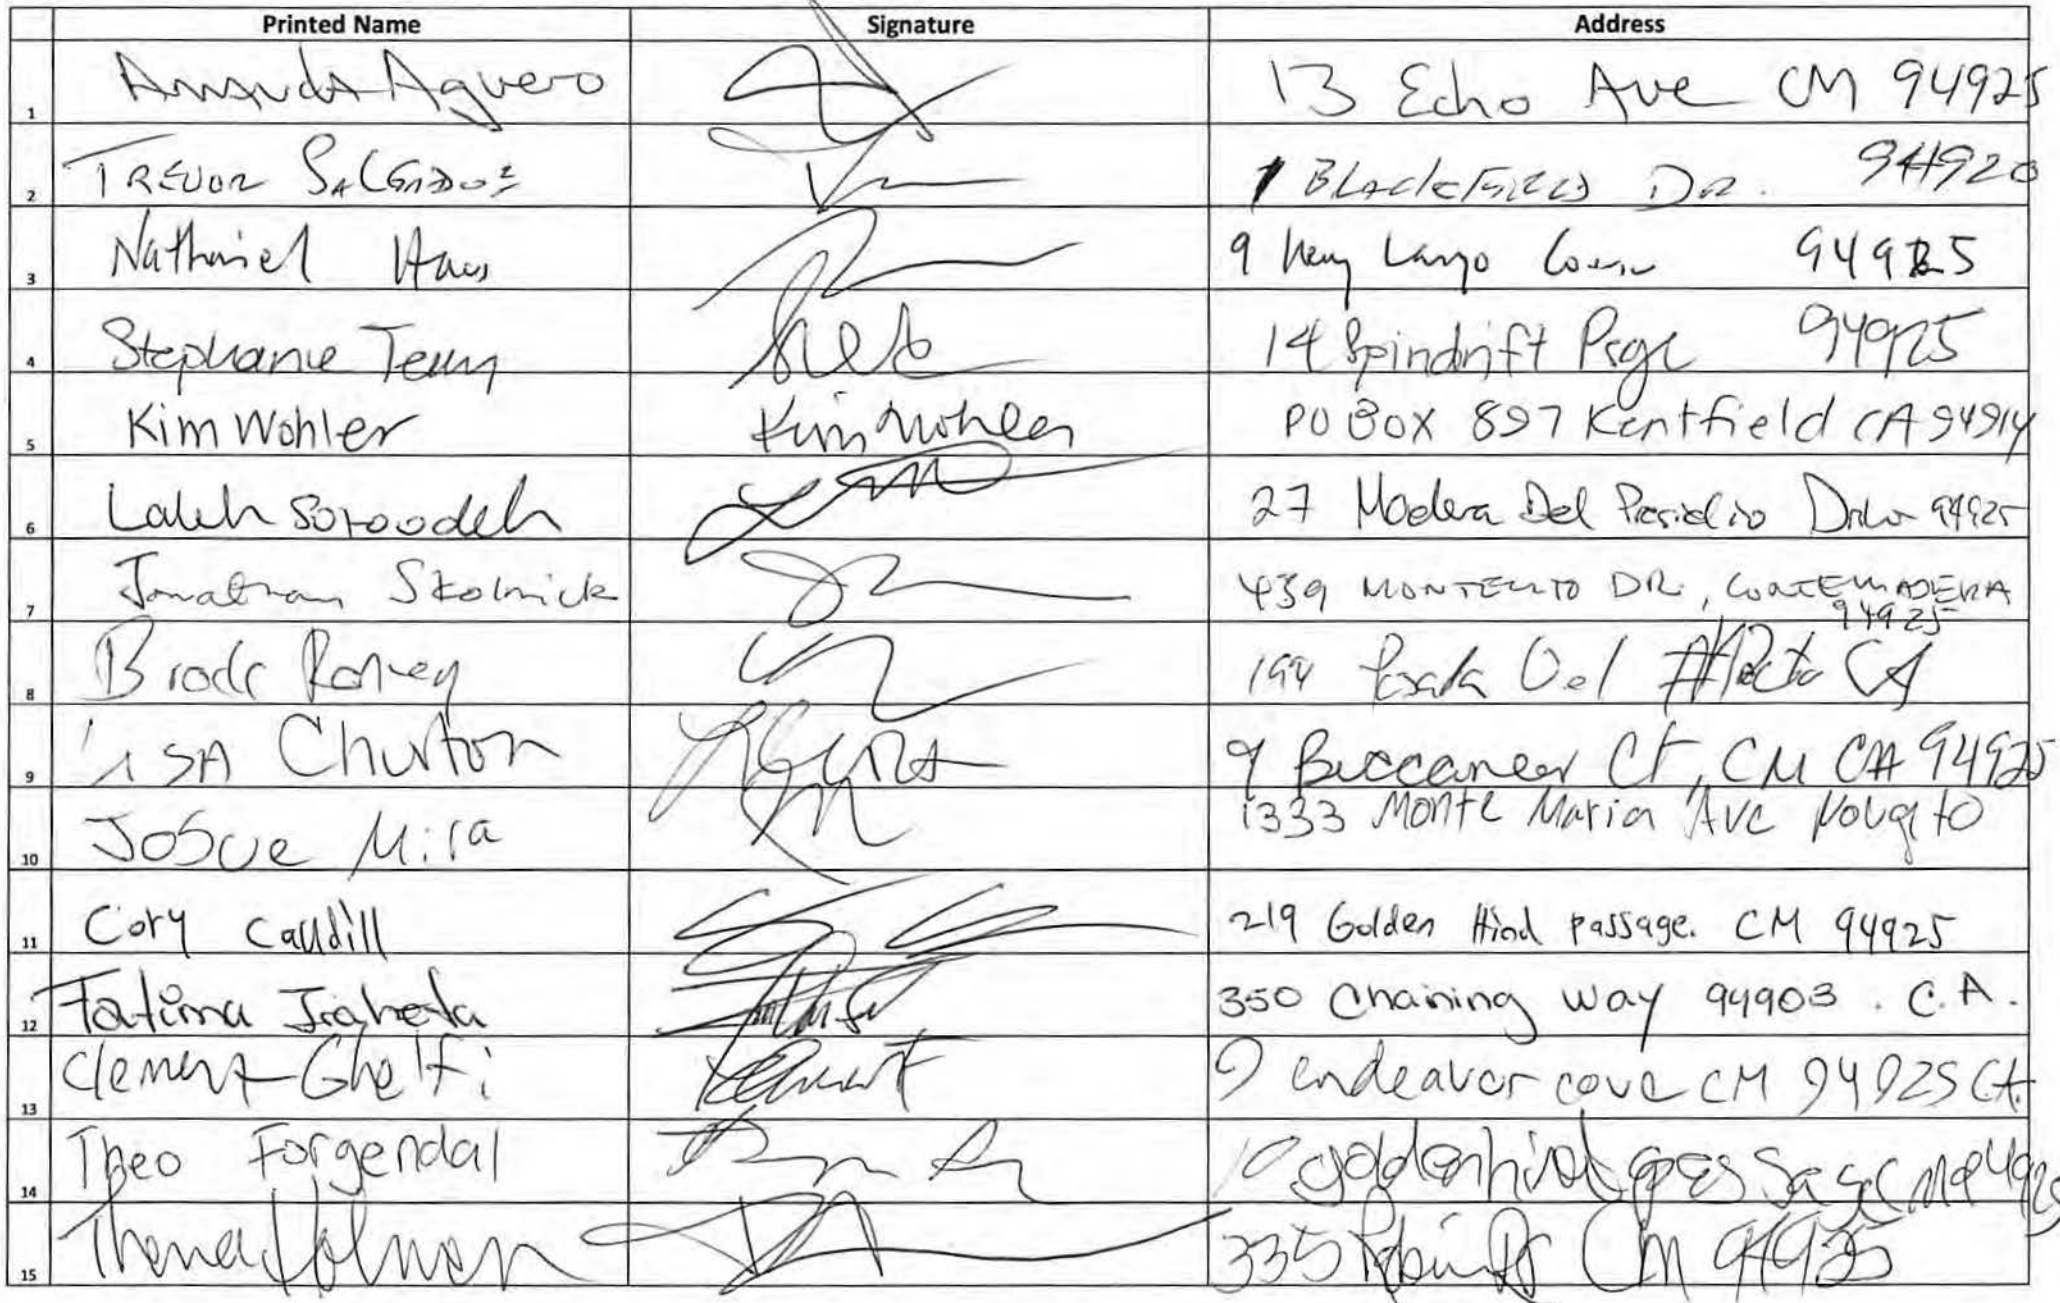 Printed Name Signature Address
1 Amanda Aguero 13 Echo Ave CM 94925
2 TREVOR 1 BLACKFIELD DR. 94920
3 Nathaniel Haas 9 Key Largo 94925
4 Stephanie Terry 14 Spindrift Psge 94925
5 Kim Wohler Kim Wohler PO BOX 897 Kentfield CA 94914
6 Laleh Soroodeh 27 Madera Del Presidio Drive 94925
7 Jonathan Skolnick 439 MONTECITO DR., CORTE MADERA
94925
8 Brock 194 Del CA
9 LISA Churton 9 Buccaneer Ct, CM CA 94925
10 Josue Mira 1333 Monte Maria Ave Novato
11 Cory Caudill 219 Golden Hind passage. CM 94925
12 Fatima 350 Channing way 94903. C.A.
13 Clement Ghelfi 9 endeavor cove CM 94925 CA
14 Theo Forgendal 10 goldenhind
15 Holman 335 CM 94925